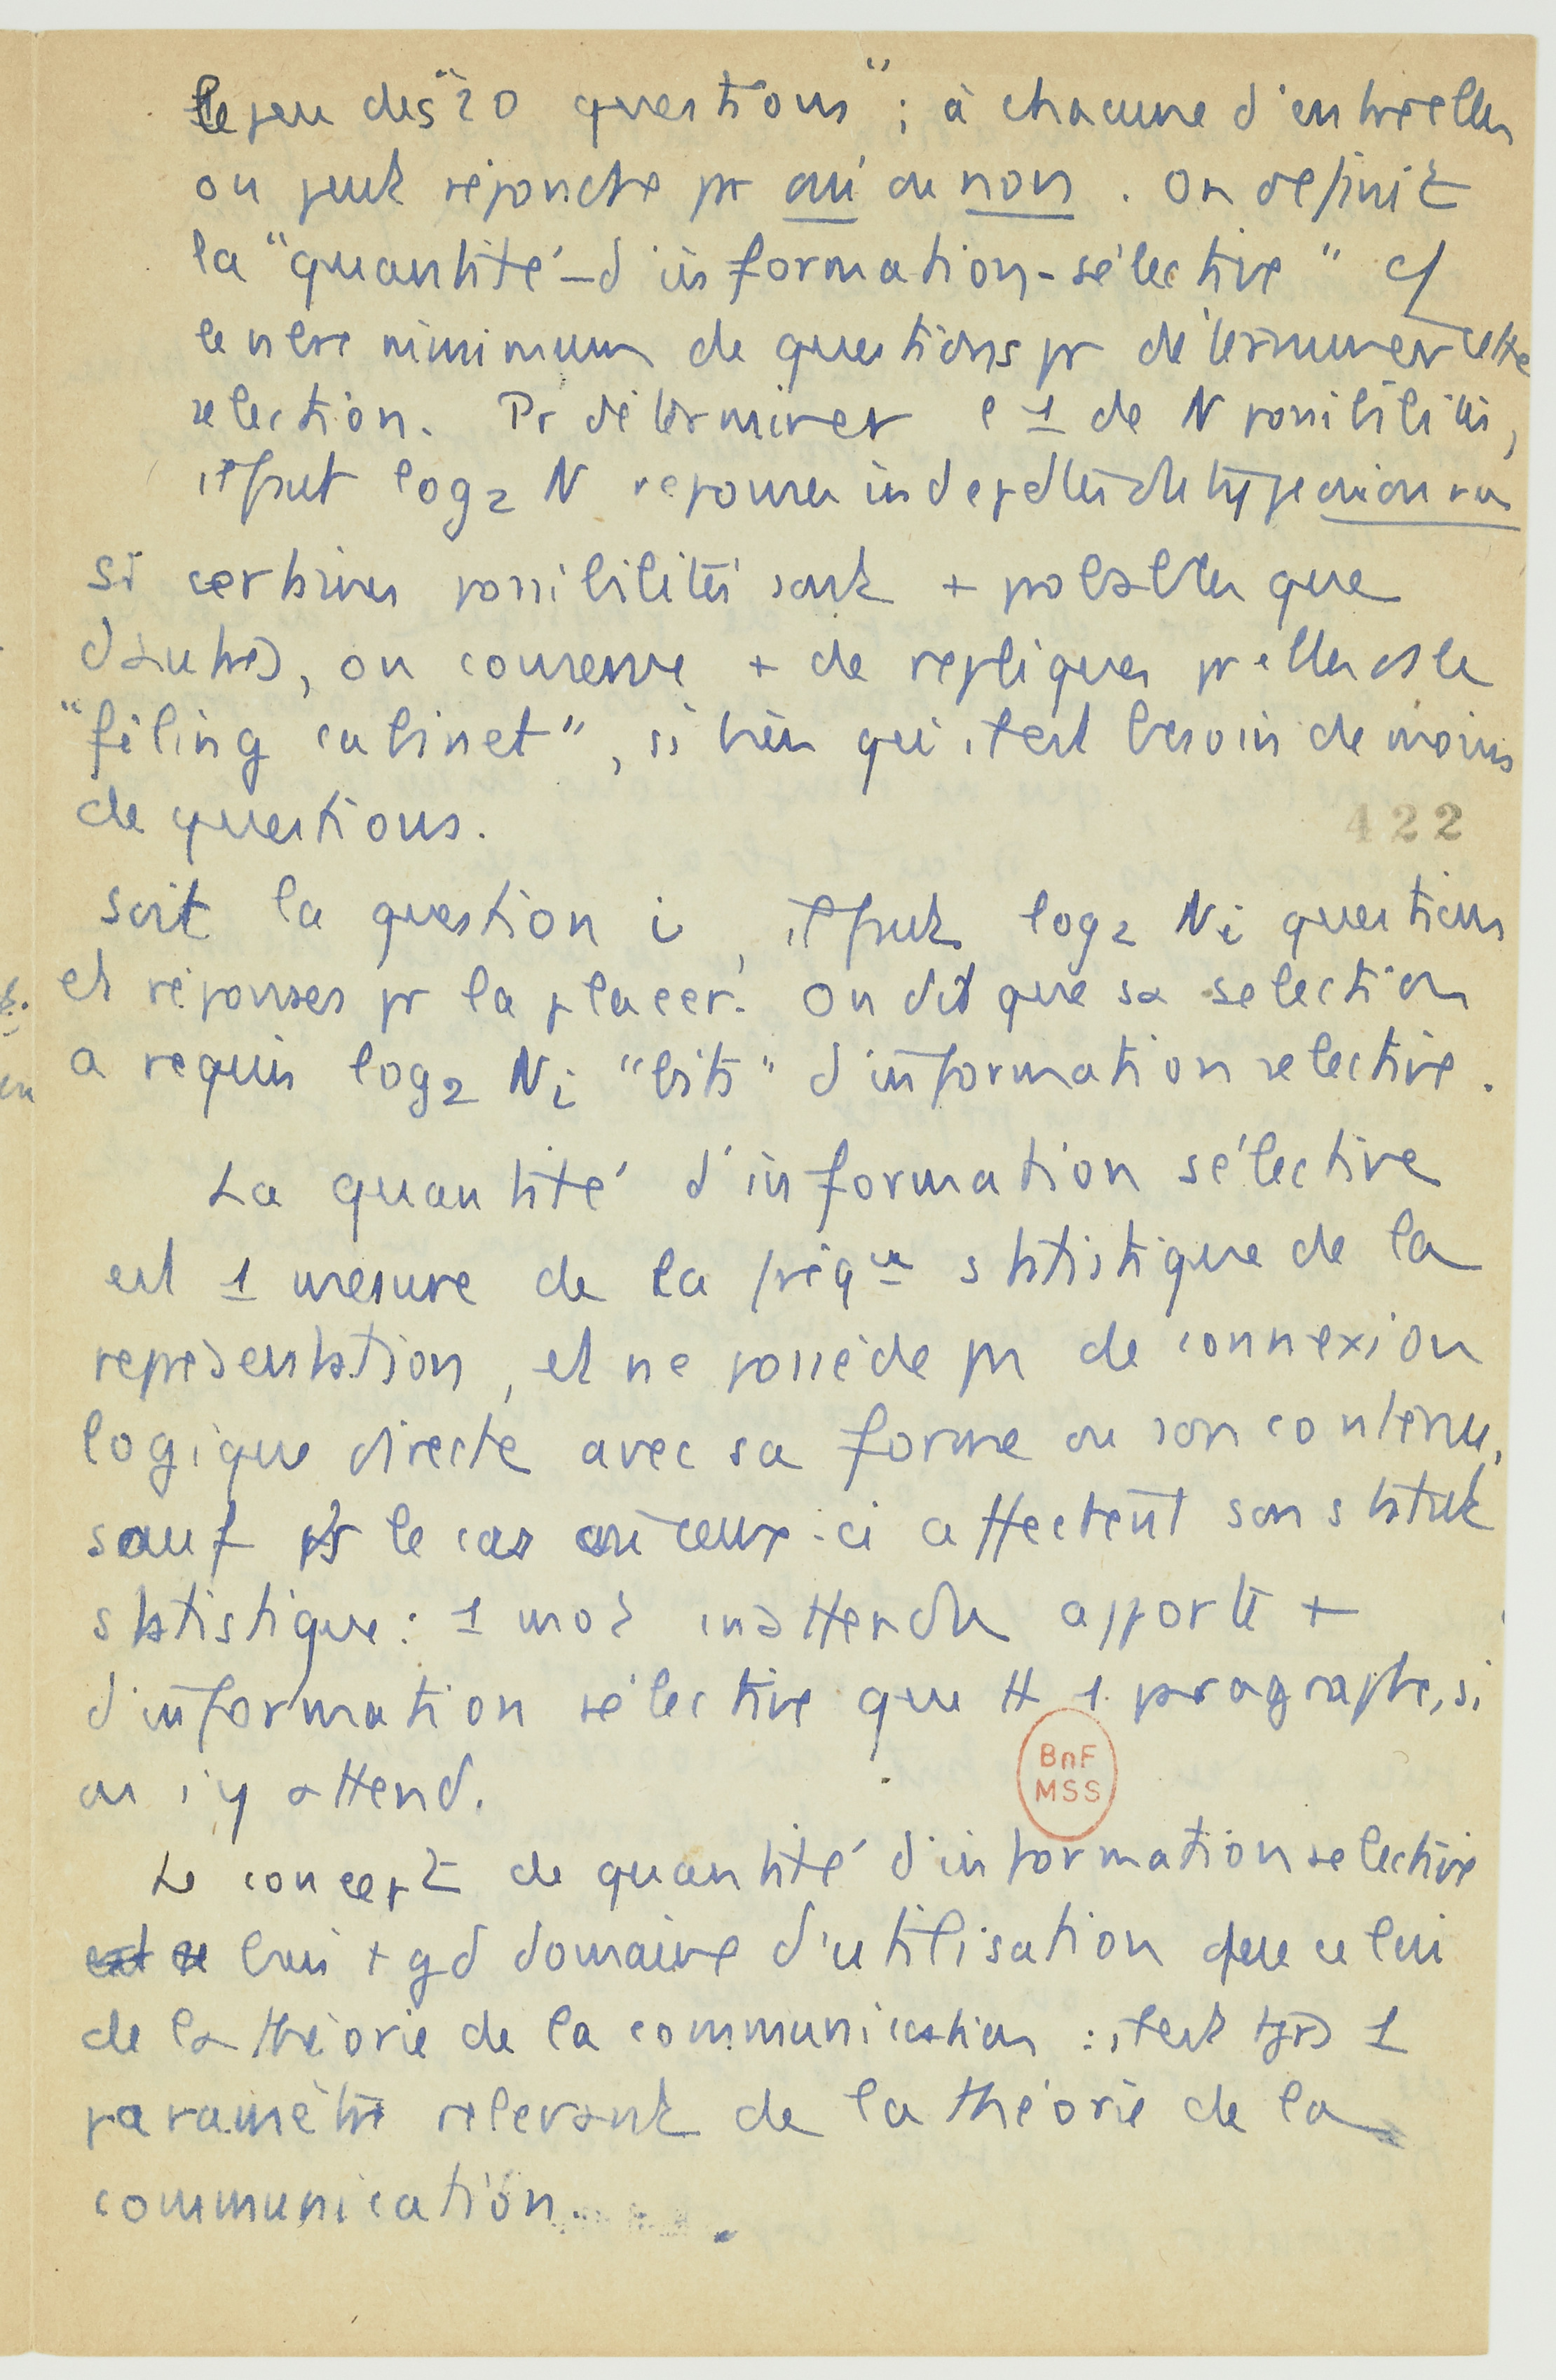 le jeu des "20 questions" ; à chacune d'entre elles
on peut répondre pr oui ou non . On définit
la "quantité-d'information-sélective" cf
le nbre minimum de questions pr déterminer cette
sélection. Pr déterminer l'1 de N possibilités,
il faut log₂ N réponses indépdtes du type oui ou non
si certaines possibilités sont + probables que
d'autres, on conserve + de répliques pr elles ds le
"filing cabinet", si bien qu'il est besoin de moins
de questions.
422
Soit la question i, il faut log₂ Ni questions
et réponses pr la placer. On dit que sa sélection
a requis log₂ Ni "bits" d'information sélective.
La quantité d'information sélective
est 1 mesure de la fréqce statistique de la
représentation, et ne possède pas de connexion
logique directe avec sa forme ou son contenu,
sauf ds le cas où ceux-ci affectent son statut
statistique : 1 mot inattendu apporte +
d'information sélective que tt 1 paragraphe, si
on s'y attend.
BnF
MSS
Le concept de quantité d'information sélective
+ gd domaine d'utilisation que celui
de la théorie de la communication : il est tjrs 1
paramètre relevant de la théorie de la
communication.